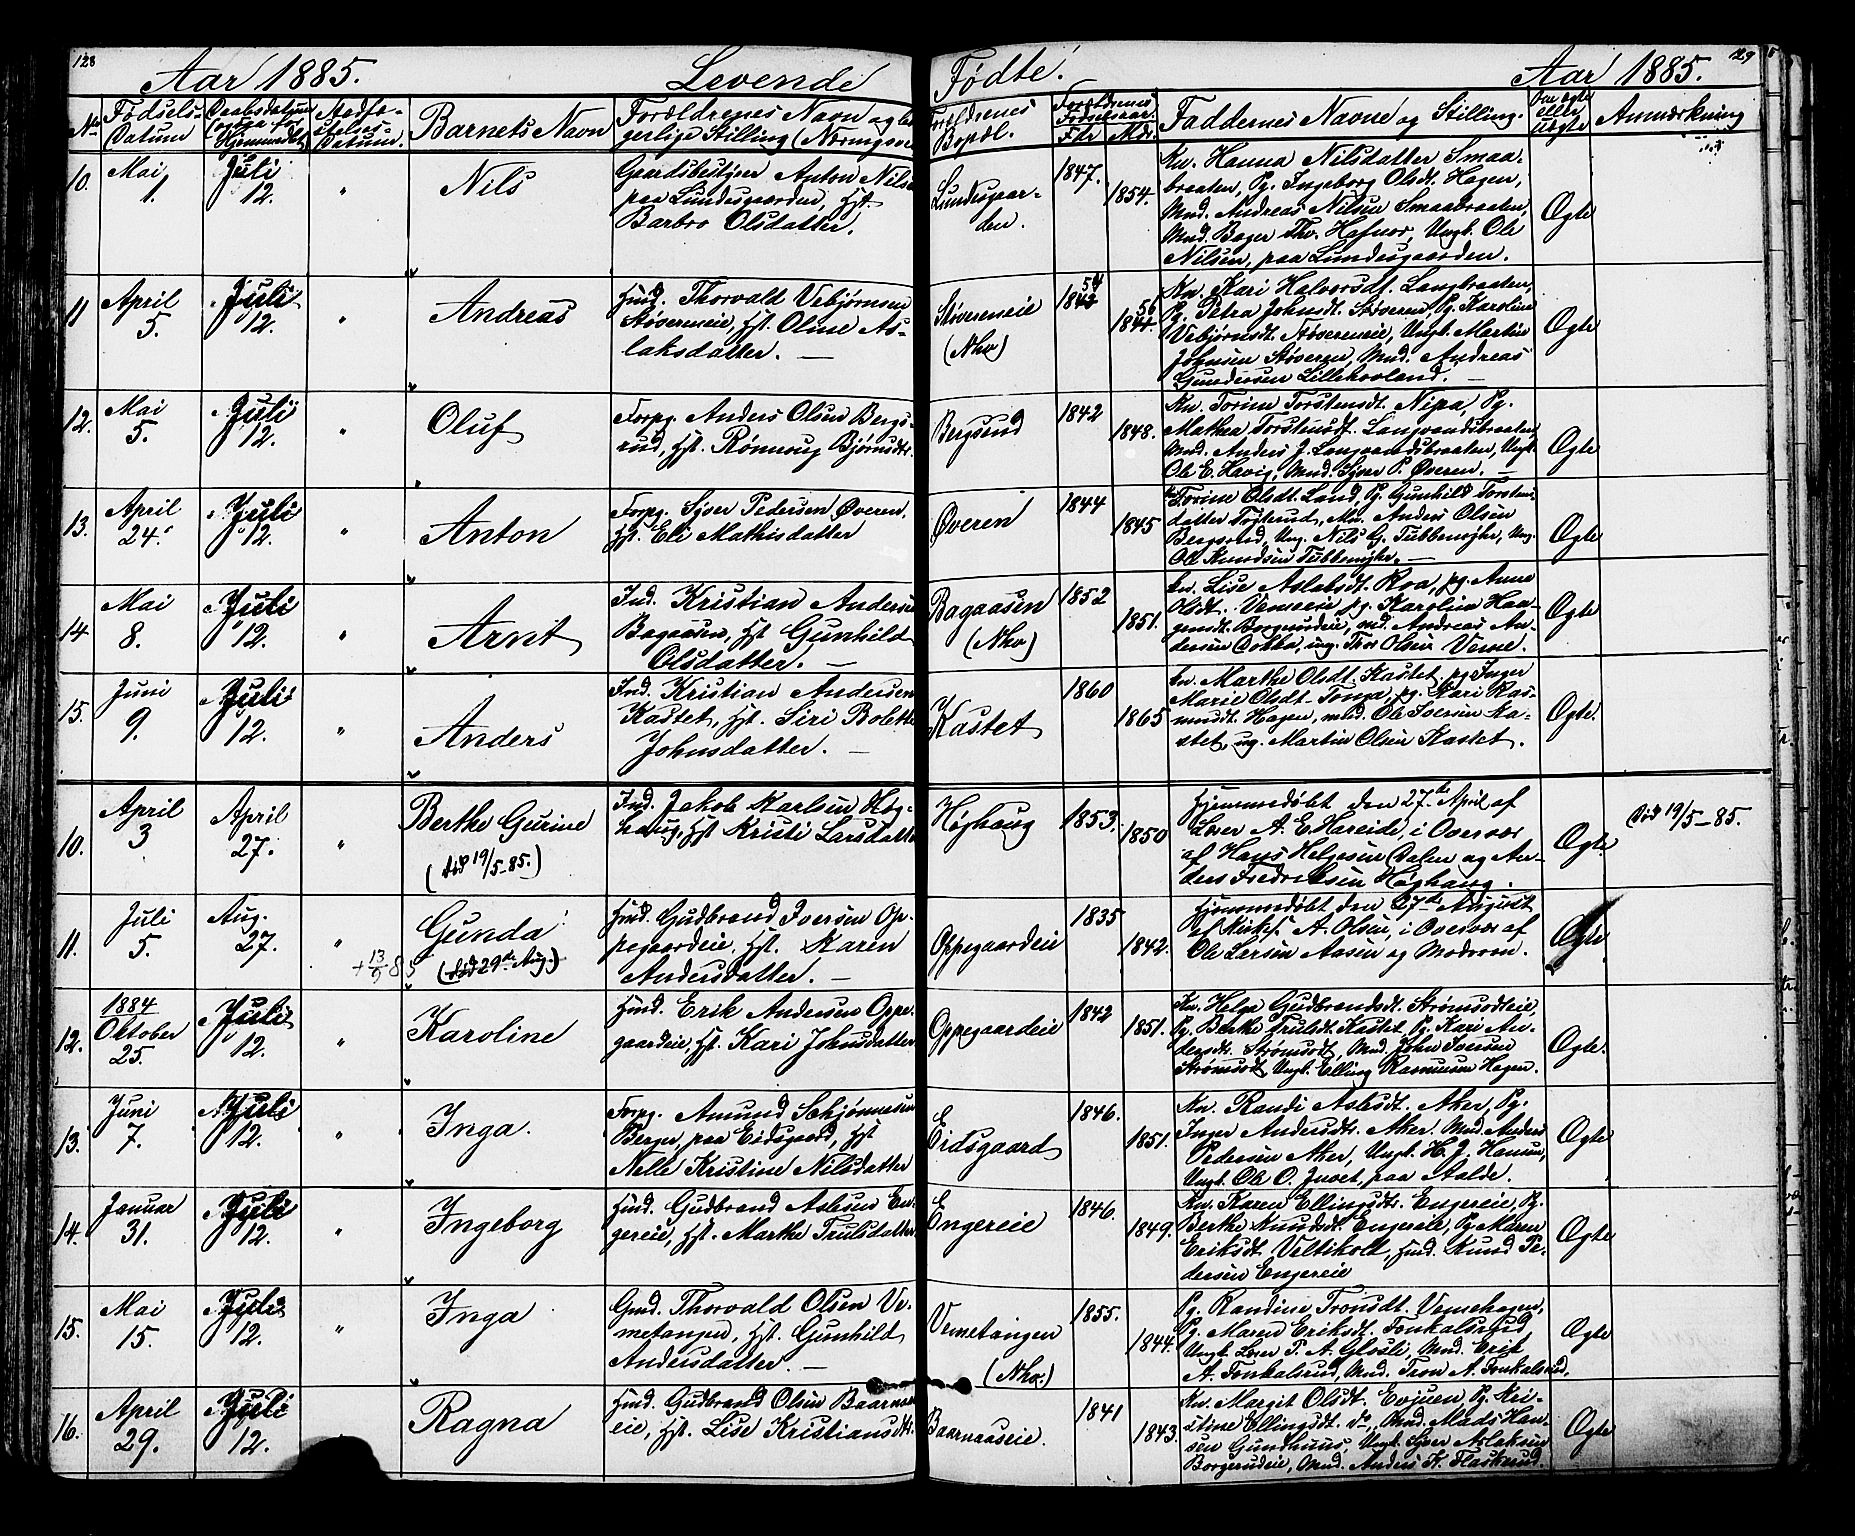 128
Aar 1885.
Levende
Fødte.
Aar 1885.
129
No
Fødsels-
Datum
Daabsdatum
(ogsaa for
Hjemmedøbt)
Datum.
Barnets Navn
Forældrenes Navn og bor-
gerlige Stilling (Næringsvei
Forældrenes
Bopæl.
Forældrenes
Fødselsaar.
Fdr Mdr.
Faddernes Navne og Stilling.
Om ægte
eller
uægte
Anmærkning
10.
Mai
1.
Juli
12.
"
Nils
Gaardsbestyrer Anton Nilsen
paa Lundesgaarden, Hst.
Barbro Olsdatter.
Lundesgaar-
den.
1847.
1854.
Kn. Hanna Nilsdatter Smaa-
braaten, Pg. Ingeborg Olsdt. Hagen,
Mnd. Andreas Nilsen Smaabraaten,
Mnd. Bager Thv. Hafnor, Ungk. Ole
Nilsen, paa Lundesgaarden.
Ægte
11
April
5.
Juli
12.
"
Andreas
Hmd. Thorvald Vebjørnsen
Støvereneie, Hst. Oline As-
laksdatter. —
Støvereneie
(Nho)
54
56
Kn. Kari Halvorsdt. Langbraaten,
Pg. Petra Johnsdt. Støveren, Pg. Karoline
Vebjørnsdt. Støvereneie, Ungk. Martin
Johnsen Støveren, Mnd. Andreas
Gundersen Lillehovland. —
Ægte
12.
Mai
5.
Juli
12.
"
Oluf
Forpg. Anders Olsen Bergs-
rud, Hst. Rønnoug Bjørnsdtr.
Bergsrud
1842
1848.
Kn. Torine Torstensdt. Nipa, Pg.
Mathea Torstensdt. Langvandsbraaten,
Mnd. Anders J. Langvandsbraaten, Ungk.
Ole E. Havig, Mnd. Sjver P. Øveren. —
Ægte
13.
April
24.
Juli
12.
"
Anton
Forpg. Sjver Pedersen Øveren,
Hst. Eli Mathisdatter
Øveren
1844
1845
Kn. Torine Olsdt. Land, Pg. Gunhild Torstens-
datter Togterud, Mn. Anders Olsen
Bergsrud, Ung. Nils G. Tubbenighe, Ung.
Ole Knudsen Tubbenighe. —
Ægte
14
Mai
8.
Juli
12.
"
Arnt
Ind. Kristian Andersen
Bagaasen, Hst. Gunhild
Olsdatter. —
Bagaasen
(Nho)
1852
1851.
kn. Lise Aslaksdt. Roa, pg. Anne
Olsdt. Vemeeie, pg. Karoline Haa-
gensdt. Borgerudeie, md. Andreas An-
dersen Dokka, ung. Thor Olsen Veme.
Ægte
15.
Juni
9.
Juli
12.
"
Anders
Ind. Kristian Andersen
Kastet, Hst. Siri Bolette
Johnsdatter. —
Kastet
1860
1865
kn. Marthe Olsdt. Kastet, pg. Inger
Marie Olsdt. Tonga, pg. Kari Ras-
musdt. Hagen, mnd. Ole Iversen Ka-
stet, ung. Martin Olsen Kastet.
Ægte.
10.
April
3
April
27.
"
Berthe Gurine
(død 19/5-85.)
Ind. Jakob Karlsen Høg-
haug, Hst Kristi Larsdatter
Høghaug
1853.
1850
Hjemmedøbt den 27de April af
Lærer A. E. Hareide, i Overvær
af Hans Helgesen Dalen og An-
ders Fredriksen Høghaug.
Ægte.
Død 19/5-85.
11.
Juli
5.
Aug.
27.
"
+ 13/9 85
Gunda
(død 29de Aug.)
Hmd. Gudbrand Iversen Op-
pegaardeie, Hst. Karen
Andersdatter. —
Oppegaardeie
1835
1842.
Hjemmedøbt den 27de August
af Kirkes. A. Olsen, i Overvær af
Ole Larsen Aasen og Moderen.
Ægte
12.
1884
Oktober
25.
Juli
12.
"
Karoline
Hmd. Erik Andersen Oppe-
gaardeie, Hst. Kari Johnsdatter
Oppegaardeie
1842
1851.
Kn. Helga Gudbrandsdt. Strømsodteie,
Pg. Berthe Trulsdt. Kastet, Pg. Kari An-
dersdtr. Strømsodt, Mnd. John Iversen
Strømsodt, Ungk. Elling Rasmusen Hagen.
Ægte.
13.
Juni
7.
Juli
12.
"
Inga.
Forpg. Amund Schjønnesen
Berger, paa Eidsgaard, Hst
Nelle Kristine Nilsdatter
Eidsgaard
1846.
1851.
Kn. Randi Aslesdt. Aker, Pg.
Inger Andersdtr. Aker, Mnd. Anders
Pedersen Aker, Ungk. H. J. Hansen,
Ungk. Ole O. Juvet, paa Aalde.
Ægte
14.
Januar
31.
Juli
12.
"
Ingeborg
Hmd. Gudbrand Aslesen En-
gereie, Hst. Marthe Trulsdatter
Engereie
1846.
1849.
Kn. Karen Ellingsdtr. Engereie, Pg.
Berthe Knudsdt. Engereie, Pg. Maren
Eriksdt. Veltikoll, Hmd. Knud Pe-
dersen Engereie
Ægte
15.
Mai
15.
Juli
12.
"
Inga
Gmd. Thorvald Olsen Ve-
metangen, Hst. Gunhild
Andersdatter. —
Vemetangen
(Nho.)
1855.
1844.
Pg. Randine Tronsdt. Vemehagen,
Pg. Maren Eriksdt. Fonkalsrud
Ungk. Lærer P. A. Glosli, Mnd. Erik
A. Fonkalsrud, Mnd. Tron A. Fonkalsrud.
Ægte
16.
April
29.
Juli
12.
"
Ragna
Hmd. Gudbrand Olsen Baarnaas-
eie, Hst. Lise Kristiansdtr.
Baarnaaseie.
1841
1843.
Kn. Margit Olsdt. Evjuen, Pg. Kri-
stine Ellingsdt. do, Mnd. Mads Han-
sen Gundhuus, Ungk. Sjver Aslaksen
Borgerudeie, Mnd. Anders K. Flaskerud.
Ægte